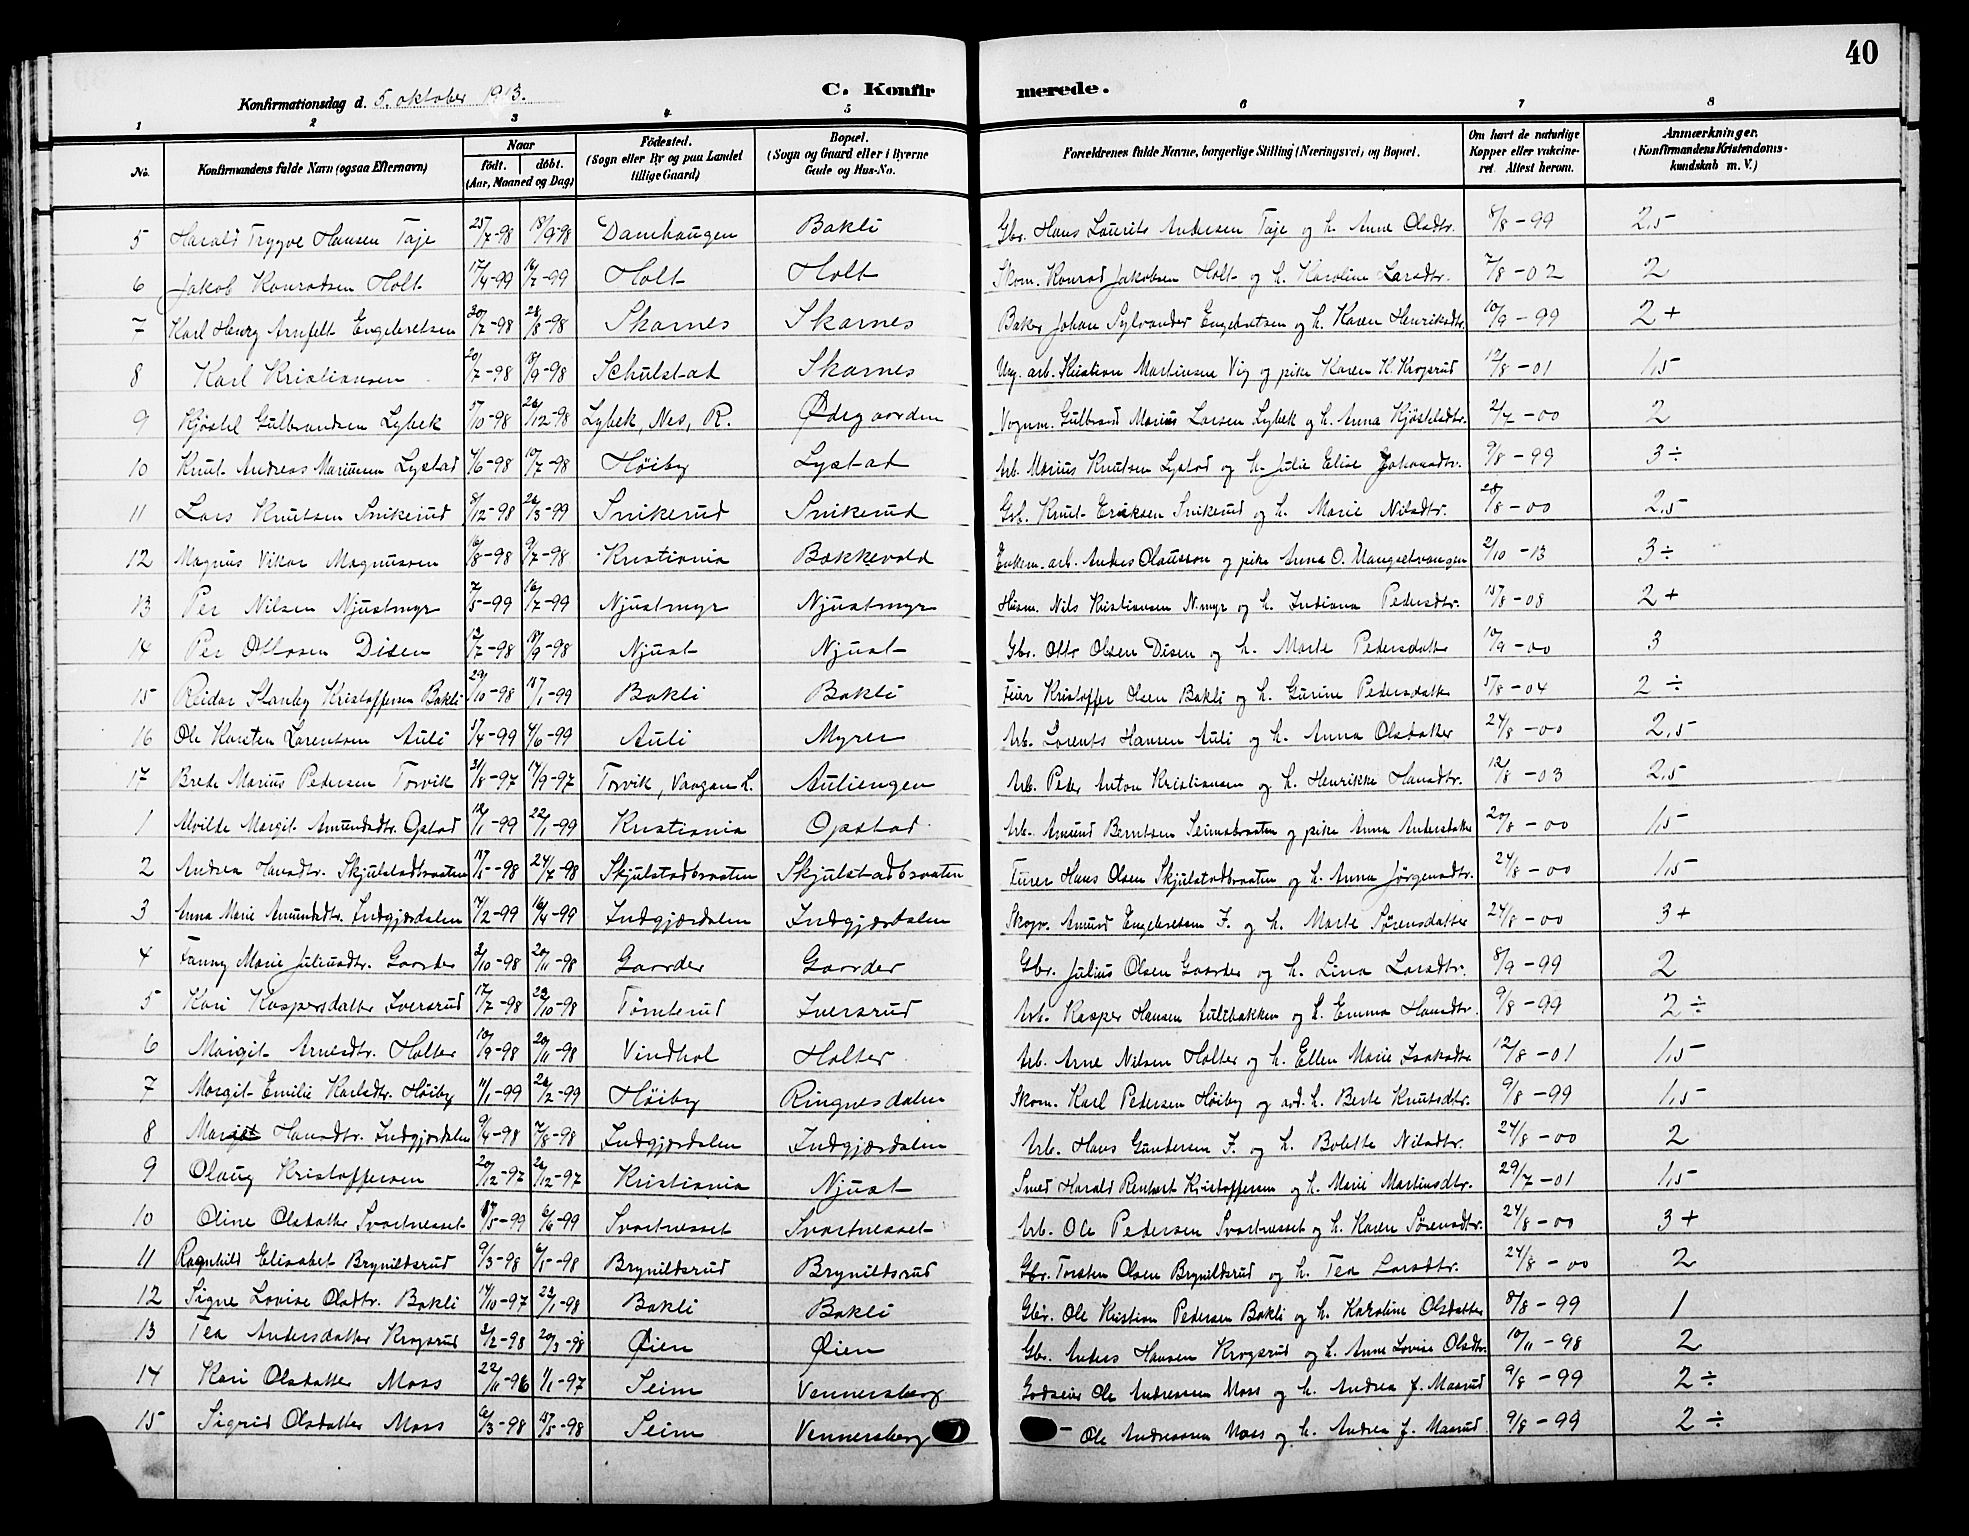 40
Konfirmationsdag d. 5. oktober 1913. C. Konfirmerede.
1 2 3 4 5 6 7 8
No. Konfirmandens fulde Navn (ogsaa Efternavn) Naar født. døbt. (Aar, Maaned og Dag) Fødested. (Sogn eller By og paa Landet tillige Gaard) Bopæl. (Sogn og Gaard eller i Byerne Gade og Hus-No. Forældrenes fulde Navne, borgerlige Stilling (Næringsvei) og Bopæl. Om havt de naturlige Kopper eller vakcineret. Attest herom. Anmærkninger. (Konfirmandens Kristendomskundskab m. V.)
5 Harald Trygve Hansen Taje 25/7-98 18/9-98 Damhaugen Bakli Gbr. Hans Laurits Andersen Taje og h. Anne Olsdtr. 8/8-99 2,5
6 Jakob Konradsen Holt 17/4-99 16/7-99 Holt Holt Skom. Konrad Jakobsen Holt og h. Karoline Larsdtr. 7/8-02 2
7 Karl Henry Arnfelt Engebretsen 20/7-98 28/8-98 Skarnes Skarnes Baker Johan Sylvander Engebretsen og h. Karen Henriksdtr. 10/9-99 2+
8 Karl Kristiansen 20/7-98 18/9-98 Schulstad Skarnes Ug. arb. Kristian Martinsen Vig og pike Karen K. Krogsrud 12/8-01 1,5
9 Kjøstel Gulbrandsen Lybek 17/10-98 26/12-98 Lybek, Nes, R. Ødegaarden Vognm. Gulbrand Marius Larsen Lybek og h. Anna Kjøstelsdtr. 2/7-00 2
10 Knut Andreas Mariusen Lystad 4/6-98 10/7-98 Høiby Lystad Arb. Marius Knutsen Lystad og h. Julie Elise Johansdtr. 9/8-99 3÷
11 Lars Knutsen Snikerud 8/12-98 26/3-99 Snikerud Snikerud Gbr. Knut Eriksen Snikerud og h. Marie Nilsdtr. 28/8-00 2,5
12 Magnus Viktor Magnussen 16/8-98 9/7-98 Kristiania Bakkevold Enkem. arb. Anders Olausson og pike Anna O. Mangsetvangen 2/10-13 3÷
13 Per Nilsen Njustmyr 7/5-99 16/7-99 Njustmyr Njustmyr Husm. Nils Kristiansen N.myr og h. Indiana Pedersdtr. 15/8-08 2+
14 Per Ottosen Disen 12/7-98 18/9-98 Njust Njust Gbr. Otto Olsen Disen og h. Marte Pedersdatter 10/9-00 3
15 Reidar Stanley Kristoffersen Bakli 29/10-98 15/1-99 Bakli Bakli Feier Kristoffer Olsen Bakli og h. Gurine Pedersdatter 15/8-04 2÷
16 Ole Karsten Lorentsen Auli 17/4-99 4/6-99 Auli Myrer Arb. Lorents Hansen Auli og h. Anna Olsdatter 24/8-00 2,5
17 Brede Marius Pedersen Torvik 21/8-97 19/9-97 Torvik, Vaagan L. Auliengen Arb. Peder Anton Kristiansen og h. Henrikke Hansdtr. 12/8-03 2,5
1 Alvilde Margit Amundsdtr. Opstad 12/1-99 22/1-99 Kristiania Opstad Arb. Amund Berntsen Seimsbraaten og pike Anna Andersdatter 20/8-00 1,5
2 Andrea Hansdtr. Skjulstadbraaten 24/7-98 Skjulstadbraaten Skjulstadbraaten Hans Olsen Skjulstadbraaten og h. Anna Jørgensdtr. 24/8-00 1,5
3 Anna Marie Amundsdtr. Indgjærdalen 7/2-99 16/4-99 Indgjærdalen Indgjærdalen Skogv. Amund Engebretsen I. og h. Marte Sørensdatter 24/8-00 3+
4 Fanny Marie Juliusdtr. Gaarder 2/10-98 20/11-98 Gaarder Gaarder Gbr. Julius Olsen Gaarder og h. Lina Larsdtr. 8/9-99 2
5 Kari Kaspersdatter Iversrud 17/7-98 23/10-98 Tomterud Iversrud Arb. Kasper Hansen Aulibakken og h. Emma Hansdtr. 9/8-99 2÷
6 Margit Arnesdtr. Holter 10/9-98 20/11-98 Vindhol Holter Arb. Arne Nilsen Holter og h. Ellen Marie Isaksdtr 12/8-01 1,5
7 Margit Emilie Karlsdtr. Høiby 11/1-99 26/2-99 Høiby Ringnesdalen Skom. Karl Pedersen Høiby og avd. h. Berte Knutsdtr. 9/8-99 1,5
8 Hansdtr. Indgjærdalen 9/4-98 7/8-98 Indgjærdalen Indgjærdalen Arb. Hans Gundersen I. og h. Bolette Nilsdtr. 24/8-00 2
9 Olaug Kristoffersen 20/12-97 26/12-97 Kristiania Njust Smed Harald Renhart Kristoffersen og h. Marie Martinsdtr. 29/7-01 1,5
10 Oline Olsdatter Svartnesset 15/5-99 6/6-99 Svartnesset Svartnesset Arb. Ole Pedersen Svartnesset og h. Karen Sørensdtr. 24/8-00 3+
11 Ragnhild Elisabet Brynildsrud 9/3-98 6/5-98 Brynildsrud Brynildsrud Gbr. Torsten Olsen Brynildsrud og h. Tea Larsdtr. 24/8-00 2
12 Signe Lovise Olsdtr. Bakli 14/10-97 23/1-98 Bakli Bakli Gbr. Ole Kristian Pedersen Bakli og h. Karoline Olsdatter 8/8-99 1
13 Tea Andersdatter Krogsrud 2/2-98 20/3-98 Øien Øien Gbr. Anders Hansen Krogsrud og h. Anne Lovise Olsdtr. 10/11-98 2
14 Kari Olsdatter Moss 22/11-96 1/1-97 Seim Vennersberg Godseier Ole Andreassen Moss og h. Andrea f. Maarud 9/8-99 2÷
15 Sigrid Olsdatter Moss 6/3-98 15/5-98 Seim Vennersberg — Ole Andreassen Moss og h. Andrea f. Maarud 9/8-99 2÷